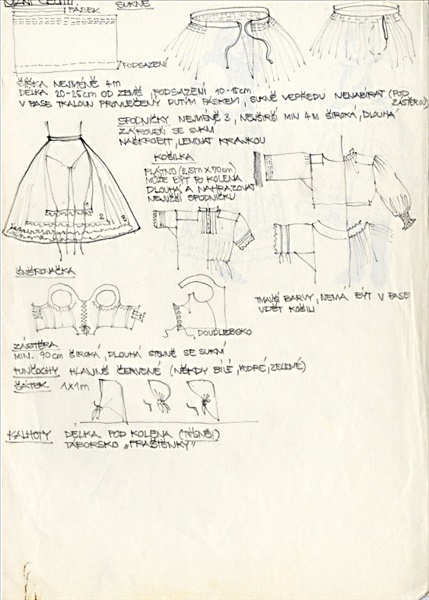 JIŽNÍ ČECHY
PÁSEK
SUKNĚ
PODSAZENÍ
ŠÍŘKA NEJMÉNĚ 4m
DÉLKA 20-25cm OD ZEMĚ, PODSAZENÍ 10-15cm
V PASE TKALOUN PROVLEČENÝ DUTÝM PÁSKEM, SUKNĚ VEPŘEDU NENABÍRAT (POD ZÁSTĚROU)
SPODNIČKY NEJMÉNĚ 3, NEJVRŠÍ MIN 4m ŠIROKÁ, DLOUHÁ
ZÁROVEŇ SE SUKNÍ
NAŠKROBIT, LEMOVAT KRAJKOU
KOŠILKA
PLÁTNO
MŮŽE BÝT PO KOLENA
DLOUHÁ A NAHRAZOVAT
NEJNIŽŠÍ SPODNIČKU
1
2
3
ŠNĚROVAČKA
DOUDLEBSKO
TMAVÉ BARVY, NEMÁ BÝT V PASE
VIDĚT KOŠILI
ZÁSTĚRA
MIN. 90cm ŠIROKÁ, DLOUHÁ STEJNĚ SE SUKNÍ
PUNČOCHY HLAVNĚ ČERVENÉ (NĚKDY BÍLÉ, MODRÉ, ZELENÉ)
ŠÁTEK 1x1m
KALHOTY DÉLKA POD KOLENA (TĚSNĚ!)
TÁBORSKO "PRAŠTĚNKY"